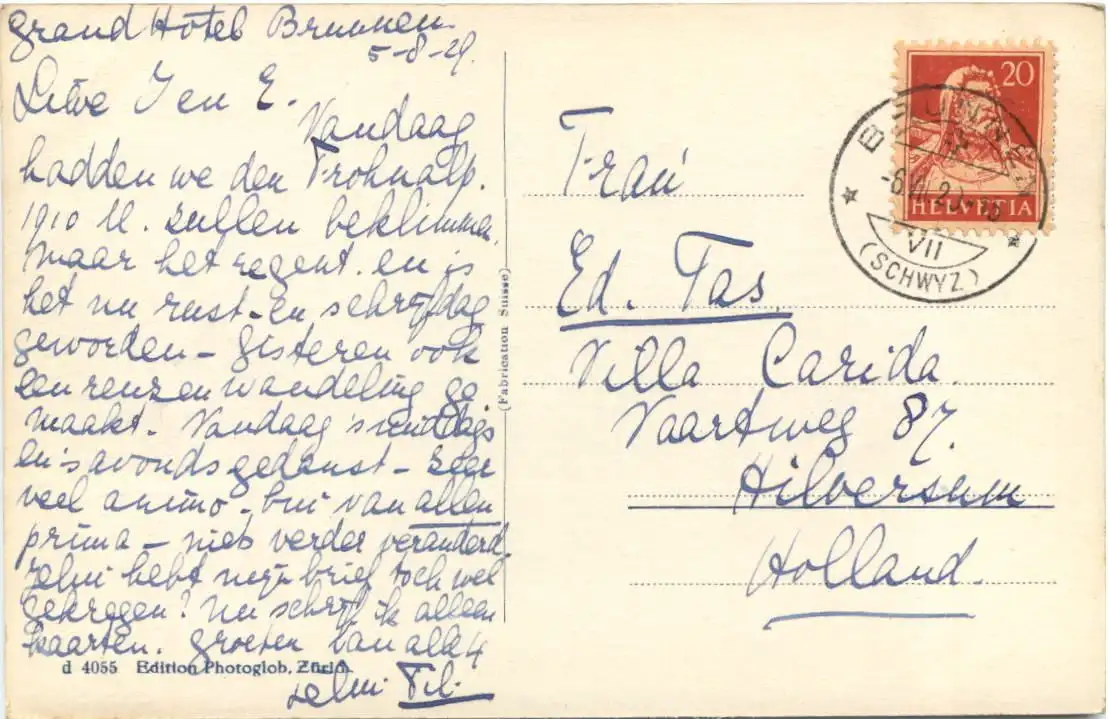 Grand Hotel Brunnen.
5-8-29.
Lieve J en E.
Vandaag
hadden we den Frohnalp.
1910 M. zullen beklimmen.
Maar het regent. en is
het nu rust-en schrijfdag
geworden – Gisteren ook
een reuzenwandeling ge
maakt. Vandaag 's middags
en 's avonds gedanst – zeer
veel animo – bui van allen
prima – niets verder veranderd.
hebt mijn brief toch wel
gekregen? Nu schrijf ik alleen
kaarten. Groeten van alle 4
d 4055 Edition Photoglob, Zürich.
(Fabrication Suisse)
20
HELVETIA
BRUNNEN
VII
(SCHWYZ)
Frau
Ed. Tas.
Villa Carida.
Vaartweg 87.
Hilversum
Holland.